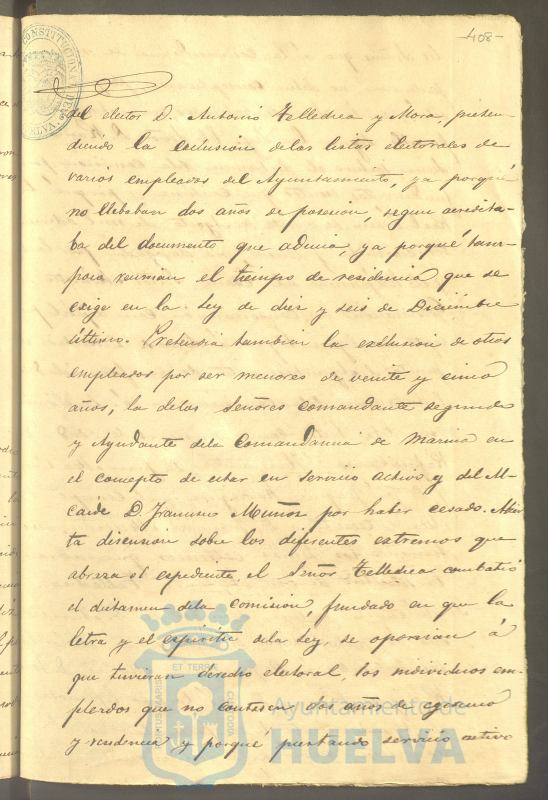 408-
del elector D. Antonio Telledrea y Mora, preten-
diendo la exclusion delas listas electorales de
varios empleados del Ayuntamiento, ya porqué
no llebaban dos años de posesion, segun acredita-
ba del documento que aducia, ya porqué tam-
poco reunian el tiempo de residencia que se
exige en la Ley de diez y seis de Diciembre
último. Pretendia tambien la exclusion de otros
empleados por ser menores de veinte y cinco
años, la delos Señores comandante segundo
y Ayudante dela Comandancia de Marina en
el concepto de estar en servicio activo y del Al-
caide D. Francisco Muñoz por haber cesado. Abier-
ta discusion sobre los diferentes extremos que
abraza el expediente, el Señor Telledrea combatió
el dictamen dela comision, fundado en que la
letra y el espíritu dela Ley, se oponian á
que tuvieran derecho electoral, los individuos em-
pleados que no contasen dos años de egercicio
y residencia y porqué prestando servicio activo
Ayuntamiento de
HUELVA